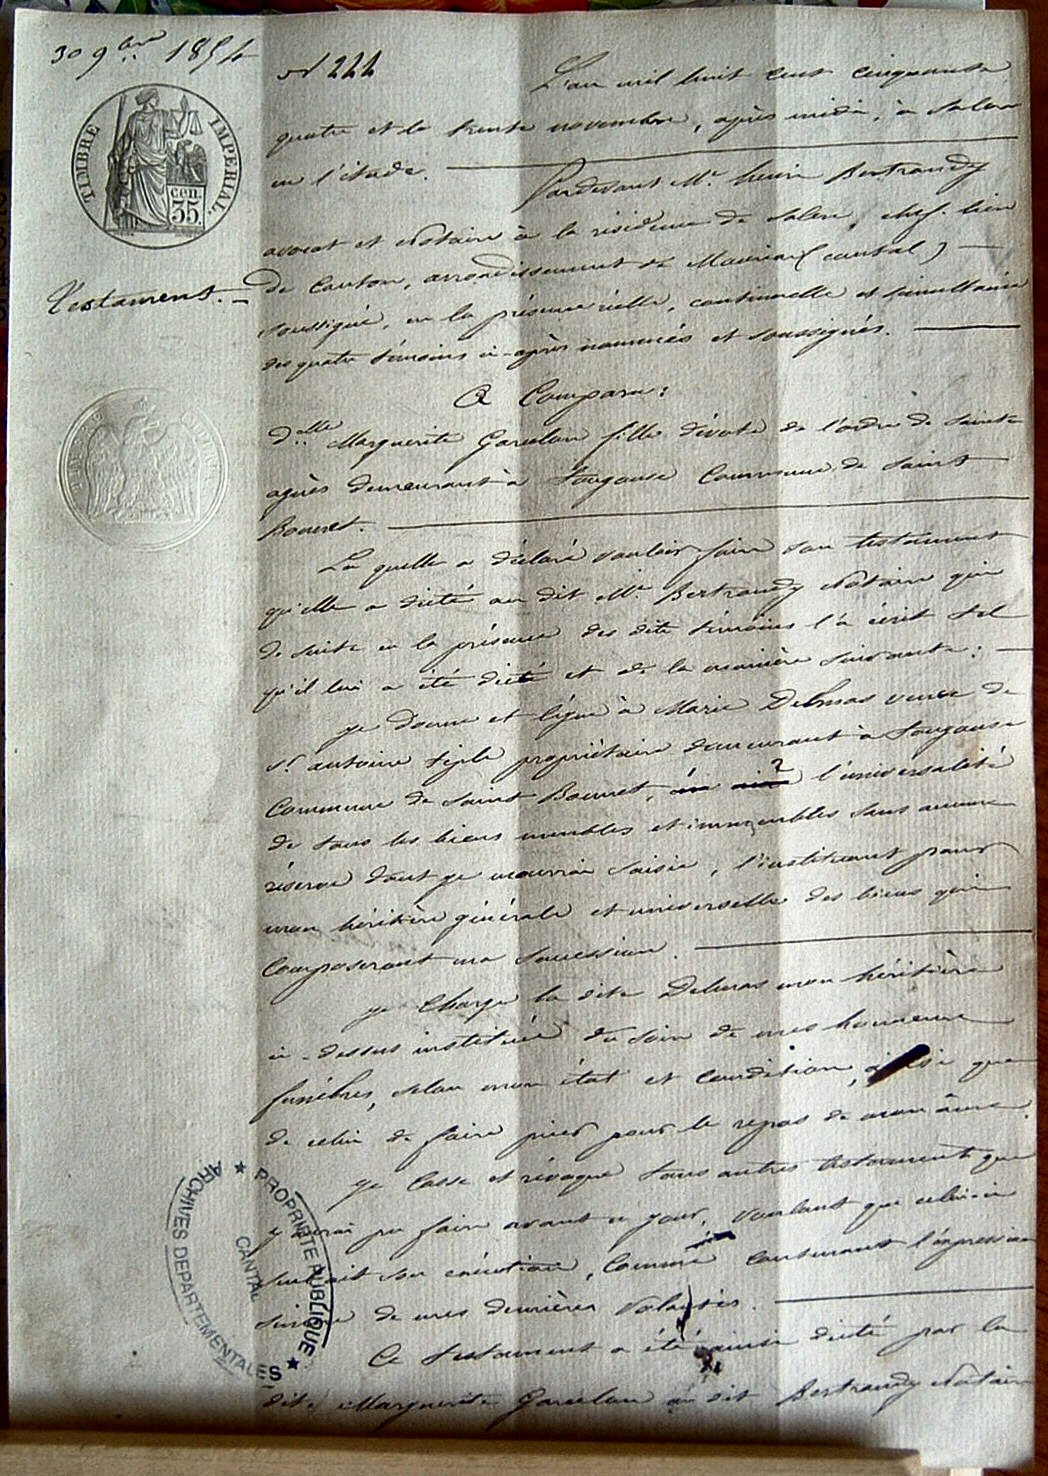 30 9bre 1854
N 222
TIMBRE IMPERIAL
cen.
35.
Testament.
L'an mil huit cent cinquante
quatre et le trente novembre, après midi, à Salers
en l'étude.
Pardevant Me henri Bertrandy
avocat et Notaire à la résidence de Salers, chef-lieu
de Canton, arrondissement de Mauriac (cantal)
soussigné, en la présence réelle, continuelle et simultanée
des quatre témoins ci-après nommés et soussignés.
A Comparu:
Dlle Marguerite Garcelon fille dévote de l'ordre de Sainte
agnès demeurant à Fougouse Commune de Saint
Bonnet.
La quelle a déclaré vouloir faire son testament
qu'elle a dicté au dit Me Bertrandy Notaire qui
de suite en la présence des dits témoins l'a écrit tel
qu'il lui a été dicté et de la manière suivante:
je donne et lègue à Marie Delmas veuve de
Sr antoine propriétaire demeurant à Fougouse
Commune de Saint Bonnet, l'universalité
de tous les biens meubles et immeubles sans aucune
réserve dont je mourrai saisie, l'instituant pour
mon héritière générale et universelle des biens qui
Composeront ma succession.
je charge la dite Delmas mon héritière
ci-dessus instituée du soin de mes honneurs
funèbres, selon mon état et condition, ainsi que
de celui de faire prier pour le repos de mon âme.
je Casse et révoque tous autres testaments que
j'aurai pu faire avant ce jour, voulant que celui-ci
seul ait son exécution, Comme contenant l'expression
sincère de mes dernières volontés.
Ce testament a été ainsi dicté par la
dite Marguerite Garcelon au dit Bertrandy Notaire
ARCHIVES DEPARTEMENTALES ★ PROPRIETE PUBLIQUE ★
CANTAL